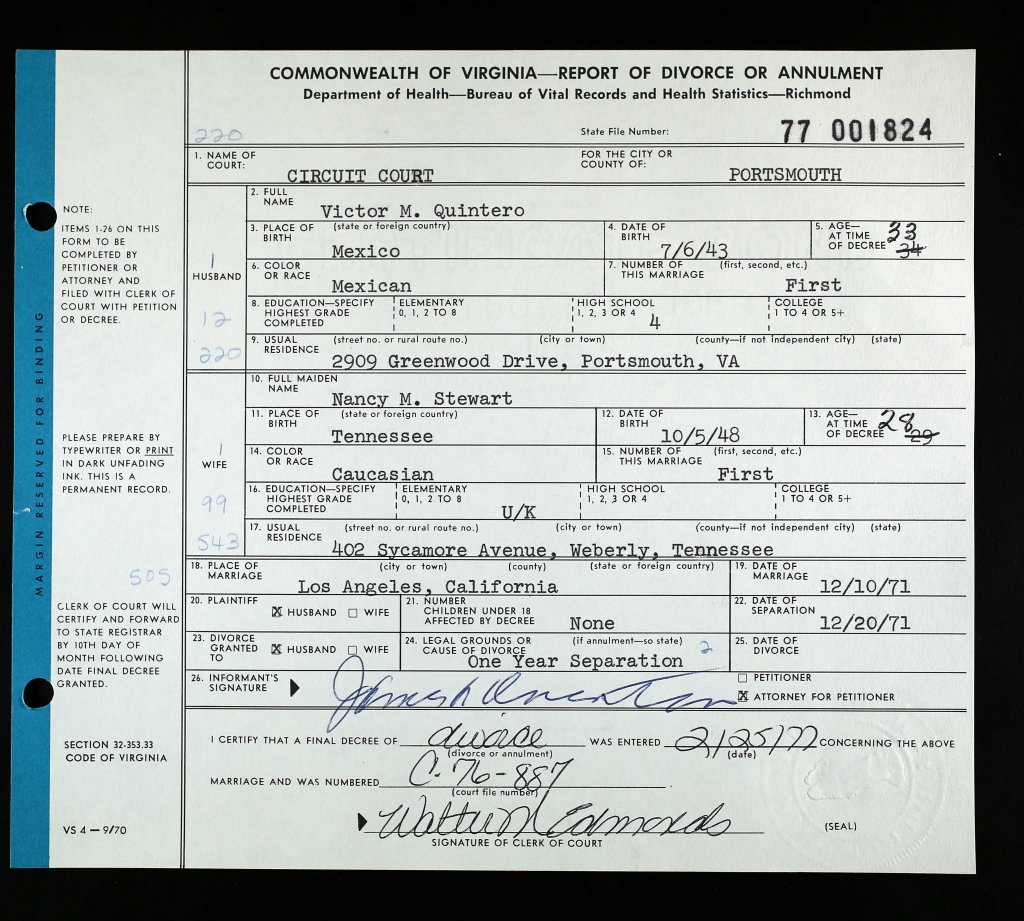 COMMONWEALTH OF VIRGINIA—REPORT OF DIVORCE OR ANNULMENT
Department of Health—Bureau of Vital Records and Health Statistics—Richmond
220
State File Number: 77 001824
1. NAME OF COURT: CIRCUIT COURT FOR THE CITY OR COUNTY OF: PORTSMOUTH
HUSBAND
1
12
220
2. FULL NAME Victor M. Quintero
3. PLACE OF BIRTH (state or foreign country) Mexico 4. DATE OF BIRTH 7/6/43 5. AGE—AT TIME OF DECREE 33 34
6. COLOR OR RACE Mexican 7. NUMBER OF THIS MARRIAGE (first, second, etc.) First
8. EDUCATION—SPECIFY HIGHEST GRADE COMPLETED ELEMENTARY 0, 1, 2 TO 8 HIGH SCHOOL 1, 2, 3 OR 4 4 COLLEGE 1 TO 4 OR 5+
9. USUAL RESIDENCE (street no. or rural route no.) (city or town) (county—if not independent city) (state)
2909 Greenwood Drive, Portsmouth, VA
WIFE
1
99
543
10. FULL MAIDEN NAME Nancy M. Stewart
11. PLACE OF BIRTH (state or foreign country) Tennessee 12. DATE OF BIRTH 10/5/48 13. AGE—AT TIME OF DECREE 28 29
14. COLOR OR RACE Caucasian 15. NUMBER OF THIS MARRIAGE (first, second, etc.) First
16. EDUCATION—SPECIFY HIGHEST GRADE COMPLETED ELEMENTARY 0, 1, 2 TO 8 U/K HIGH SCHOOL 1, 2, 3 OR 4 COLLEGE 1 TO 4 OR 5+
17. USUAL RESIDENCE (street no. or rural route no.) (city or town) (county—if not independent city) (state)
402 Sycamore Avenue, Weberly, Tennessee
18. PLACE OF MARRIAGE (city or town) (county) (state or foreign country) Los Angeles, California 19. DATE OF MARRIAGE 12/10/71
20. PLAINTIFF X HUSBAND WIFE 21. NUMBER CHILDREN UNDER 18 AFFECTED BY DECREE None 22. DATE OF SEPARATION 12/20/71
23. DIVORCE GRANTED TO X HUSBAND WIFE 24. LEGAL GROUNDS OR CAUSE OF DIVORCE (if annulment—so state) One Year Separation 2 25. DATE OF DIVORCE
26. INFORMANT'S SIGNATURE PETITIONER
X ATTORNEY FOR PETITIONER
I CERTIFY THAT A FINAL DECREE OF divorce WAS ENTERED 2/25/77 CONCERNING THE ABOVE
(divorce or annulment) (date)
MARRIAGE AND WAS NUMBERED C-76-887
(court file number)
Walter Edmonds
SIGNATURE OF CLERK OF COURT (SEAL)
NOTE:
ITEMS 1-26 ON THIS
FORM TO BE
COMPLETED BY
PETITIONER OR
ATTORNEY AND
FILED WITH CLERK OF
COURT WITH PETITION
OR DECREE.
PLEASE PREPARE BY
TYPEWRITER OR PRINT
IN DARK UNFADING
INK. THIS IS A
PERMANENT RECORD.
505
CLERK OF COURT WILL
CERTIFY AND FORWARD
TO STATE REGISTRAR
BY 10TH DAY OF
MONTH FOLLOWING
DATE FINAL DECREE
GRANTED.
SECTION 32-353.33
CODE OF VIRGINIA
VS 4 — 9/70
MARGIN RESERVED FOR BINDING